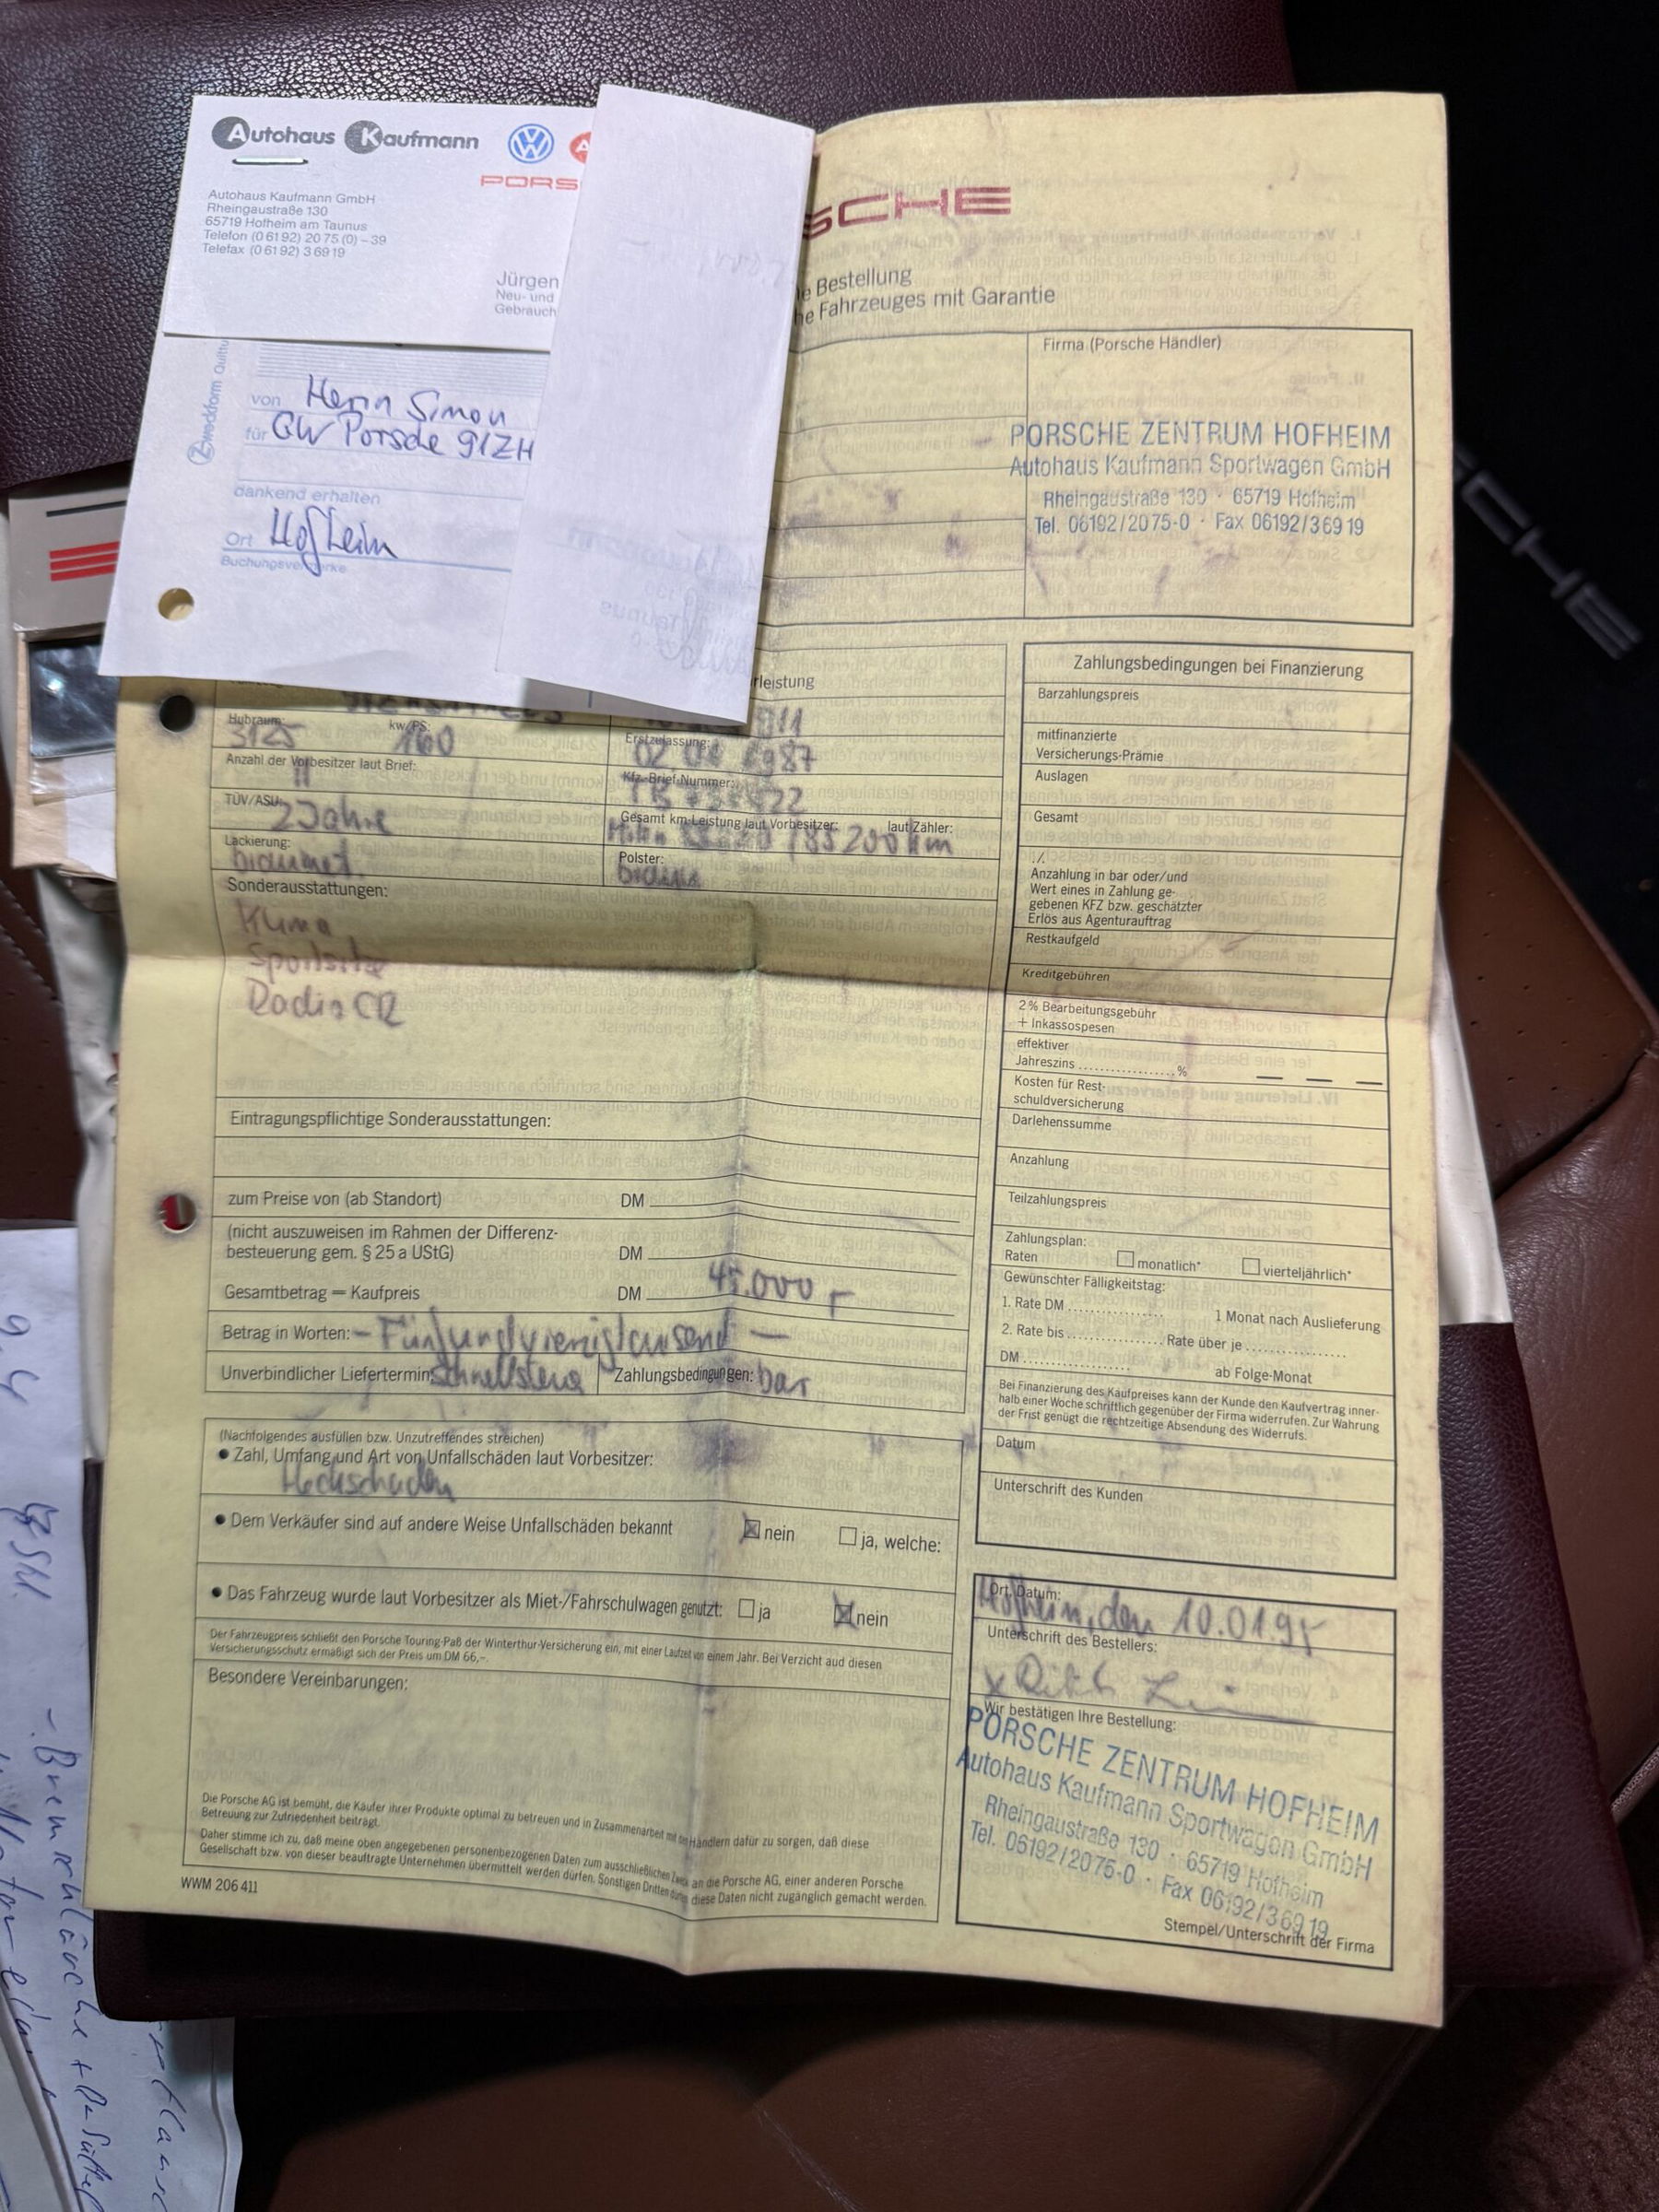 Autohaus Kaufmann
PORS
Autohaus Kaufmann GmbH
Rheingaustraße 130
65719 Hofheim am Taunus
Telefon (0 61 92) 20 75 (0) – 39
Telefax (0 61 92) 3 69 19
Jürgen
Neu- und
Gebrauch
Zweckform Quittu
von Herrn Simon
für GW Porsche
dankend erhalten
Ort Hofheim
Buchungsvermerke
SCHE
e Bestellung
e Fahrzeuges mit Garantie
Firma (Porsche Händler)
PORSCHE ZENTRUM HOFHEIM
Autohaus Kaufmann Sportwagen GmbH
Rheingaustraße 130 · 65719 Hofheim
Tel. 06192/2075-0 · Fax 06192/36919
rleistung
911
Hubraum: 3125
kw/PS: 160
Erstzulassung: 1987
Anzahl der Vorbesitzer laut Brief:
Kfz-Brief-Nummer:
TÜV/ASU: 2 Jahre
Gesamt km-Leistung laut Vorbesitzer: laut Zähler: 85200 km
Lackierung:
Polster:
Sonderausstattungen:
Klima
Sportsitze
Radio CR
Eintragungspflichtige Sonderausstattungen:
zum Preise von (ab Standort) DM
(nicht auszuweisen im Rahmen der Differenz-
besteuerung gem. § 25 a UStG) DM
Gesamtbetrag = Kaufpreis DM 45.000,-
Betrag in Worten: – Fünfundvierzigtausend –
Unverbindlicher Liefertermin: schnellstens Zahlungsbedingungen: bar
(Nachfolgendes ausfüllen bzw. Unzutreffendes streichen)
• Zahl, Umfang und Art von Unfallschäden laut Vorbesitzer:
Heckschaden
• Dem Verkäufer sind auf andere Weise Unfallschäden bekannt nein ja, welche:
• Das Fahrzeug wurde laut Vorbesitzer als Miet-/Fahrschulwagen genutzt: ja nein
Der Fahrzeugpreis schließt den Porsche Touring-Paß der Winterthur-Versicherung ein, mit einer Laufzeit von einem Jahr. Bei Verzicht aud diesen
Versicherungsschutz ermäßigt sich der Preis um DM 66,–.
Besondere Vereinbarungen:
Die Porsche AG ist bemüht, die Käufer ihrer Produkte optimal zu betreuen und in Zusammenarbeit mit den Händlern dafür zu sorgen, daß diese
Betreuung zur Zufriedenheit beiträgt.
Daher stimme ich zu, daß meine oben angegebenen personenbezogenen Daten zum ausschließlichen Zweck an die Porsche AG, einer anderen Porsche
Gesellschaft bzw. von dieser beauftragte Unternehmen übermittelt werden dürfen. Sonstigen Dritten dürfen diese Daten nicht zugänglich gemacht werden.
WWM 206 411
Zahlungsbedingungen bei Finanzierung
Barzahlungspreis
mitfinanzierte
Versicherungs-Prämie
Auslagen
Gesamt
./.
Anzahlung in bar oder/und
Wert eines in Zahlung ge-
gebenen KFZ bzw. geschätzter
Erlös aus Agenturauftrag
Restkaufgeld
Kreditgebühren
2% Bearbeitungsgebühr
+ Inkassospesen
effektiver
Jahreszins ..................%
Kosten für Rest-
schuldversicherung
Darlehenssumme
Anzahlung
Teilzahlungspreis
Zahlungsplan:
Raten monatlich* vierteljährlich*
Gewünschter Fälligkeitstag:
1. Rate DM ................ 1 Monat nach Auslieferung
2. Rate bis ................ Rate über je ................
DM .................. ab Folge-Monat
Bei Finanzierung des Kaufpreises kann der Kunde den Kaufvertrag inner-
halb einer Woche schriftlich gegenüber der Firma widerrufen. Zur Wahrung
der Frist genügt die rechtzeitige Absendung des Widerrufs.
Datum
Unterschrift des Kunden
Ort, Datum:
Hofheim, den 10.01.95
Unterschrift des Bestellers:
Wir bestätigen Ihre Bestellung:
PORSCHE ZENTRUM HOFHEIM
Autohaus Kaufmann Sportwagen GmbH
Rheingaustraße 130 · 65719 Hofheim
Tel. 06192/2075-0 · Fax 06192/36919
Stempel/Unterschrift der Firma
SCHE